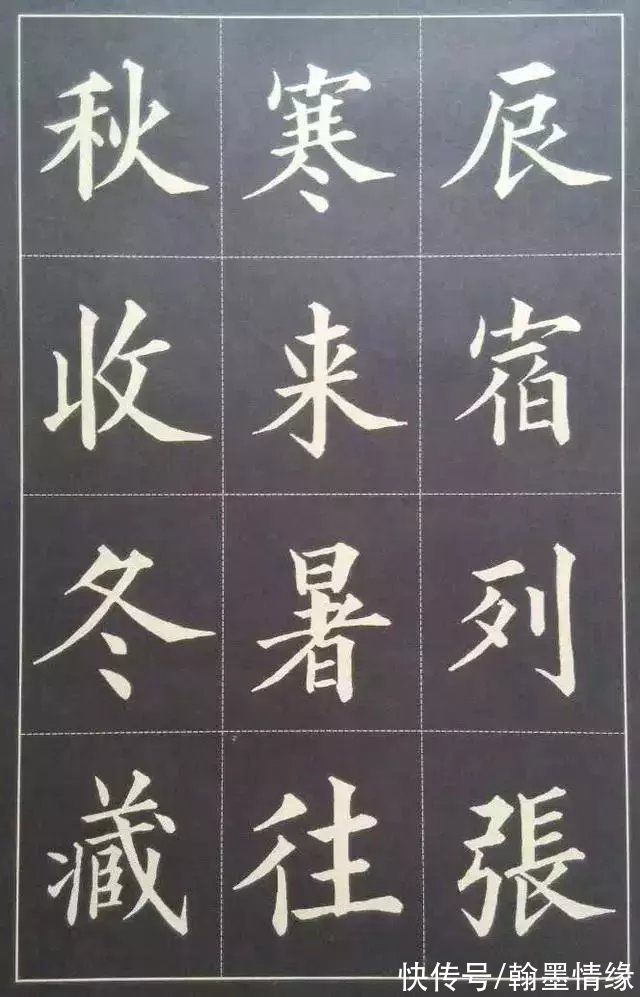 辰宿列張
寒来暑往
秋收冬藏
快传号/翰墨情缘